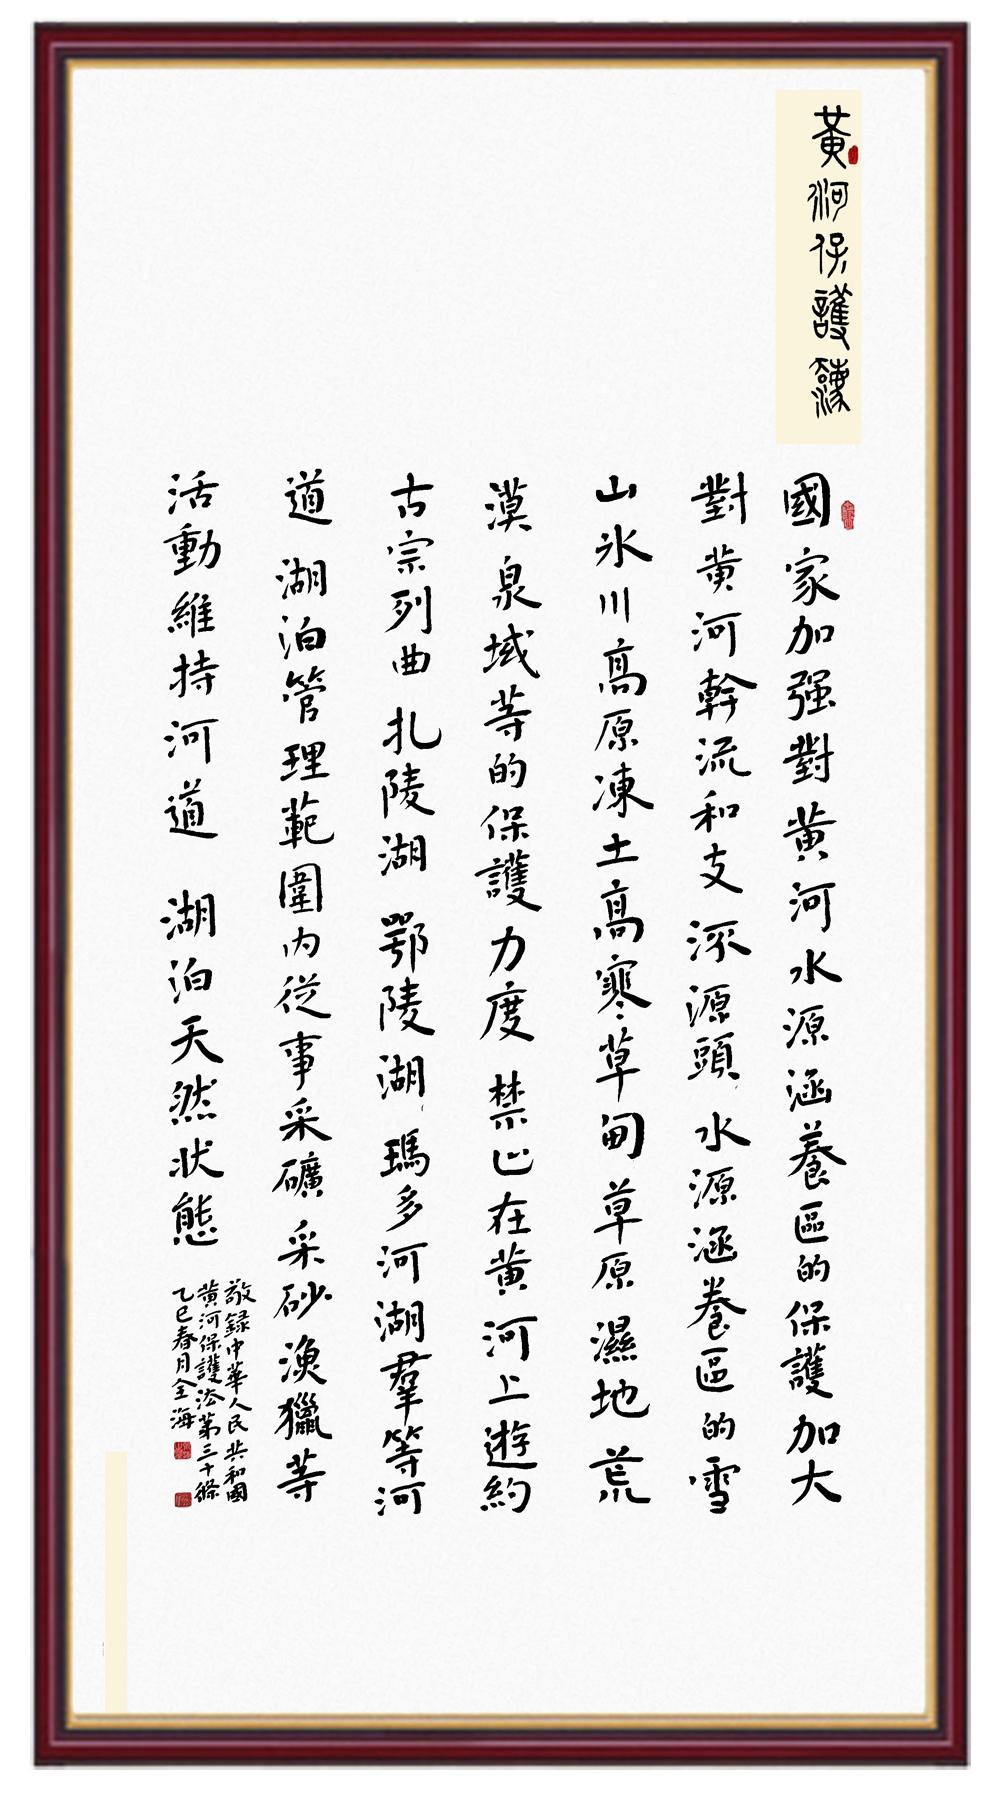 黃河保護
國家加强對黄河水源涵養區的保護加大
對黄河幹流和支流源頭、水源涵養區的雪
山冰川高原凍土高寒草甸草原濕地荒
漠泉域等的保護力度禁止在黄河上遊約
古宗列曲扎陵湖鄂陵湖、瑪多河湖羣等河
道湖泊管理範圍内從事采礦采砂漁獵等
活動維持河道湖泊天然狀態
敬録中華人民共和國
黄河保護法第三十條
乙巳春月全海